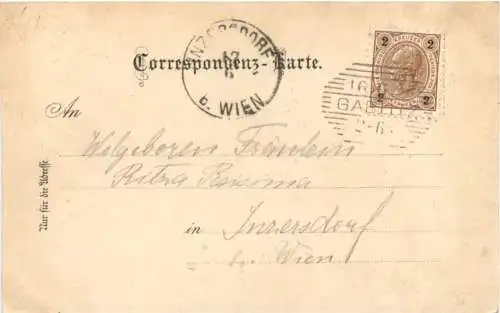 Correspondenz-Karte.
NZERSDORF
b. WIEN
2 2
2 2
16
An
Wolgeboren Fräulein
in Inzersdorf
bei Wien
Nur für die Adresse.